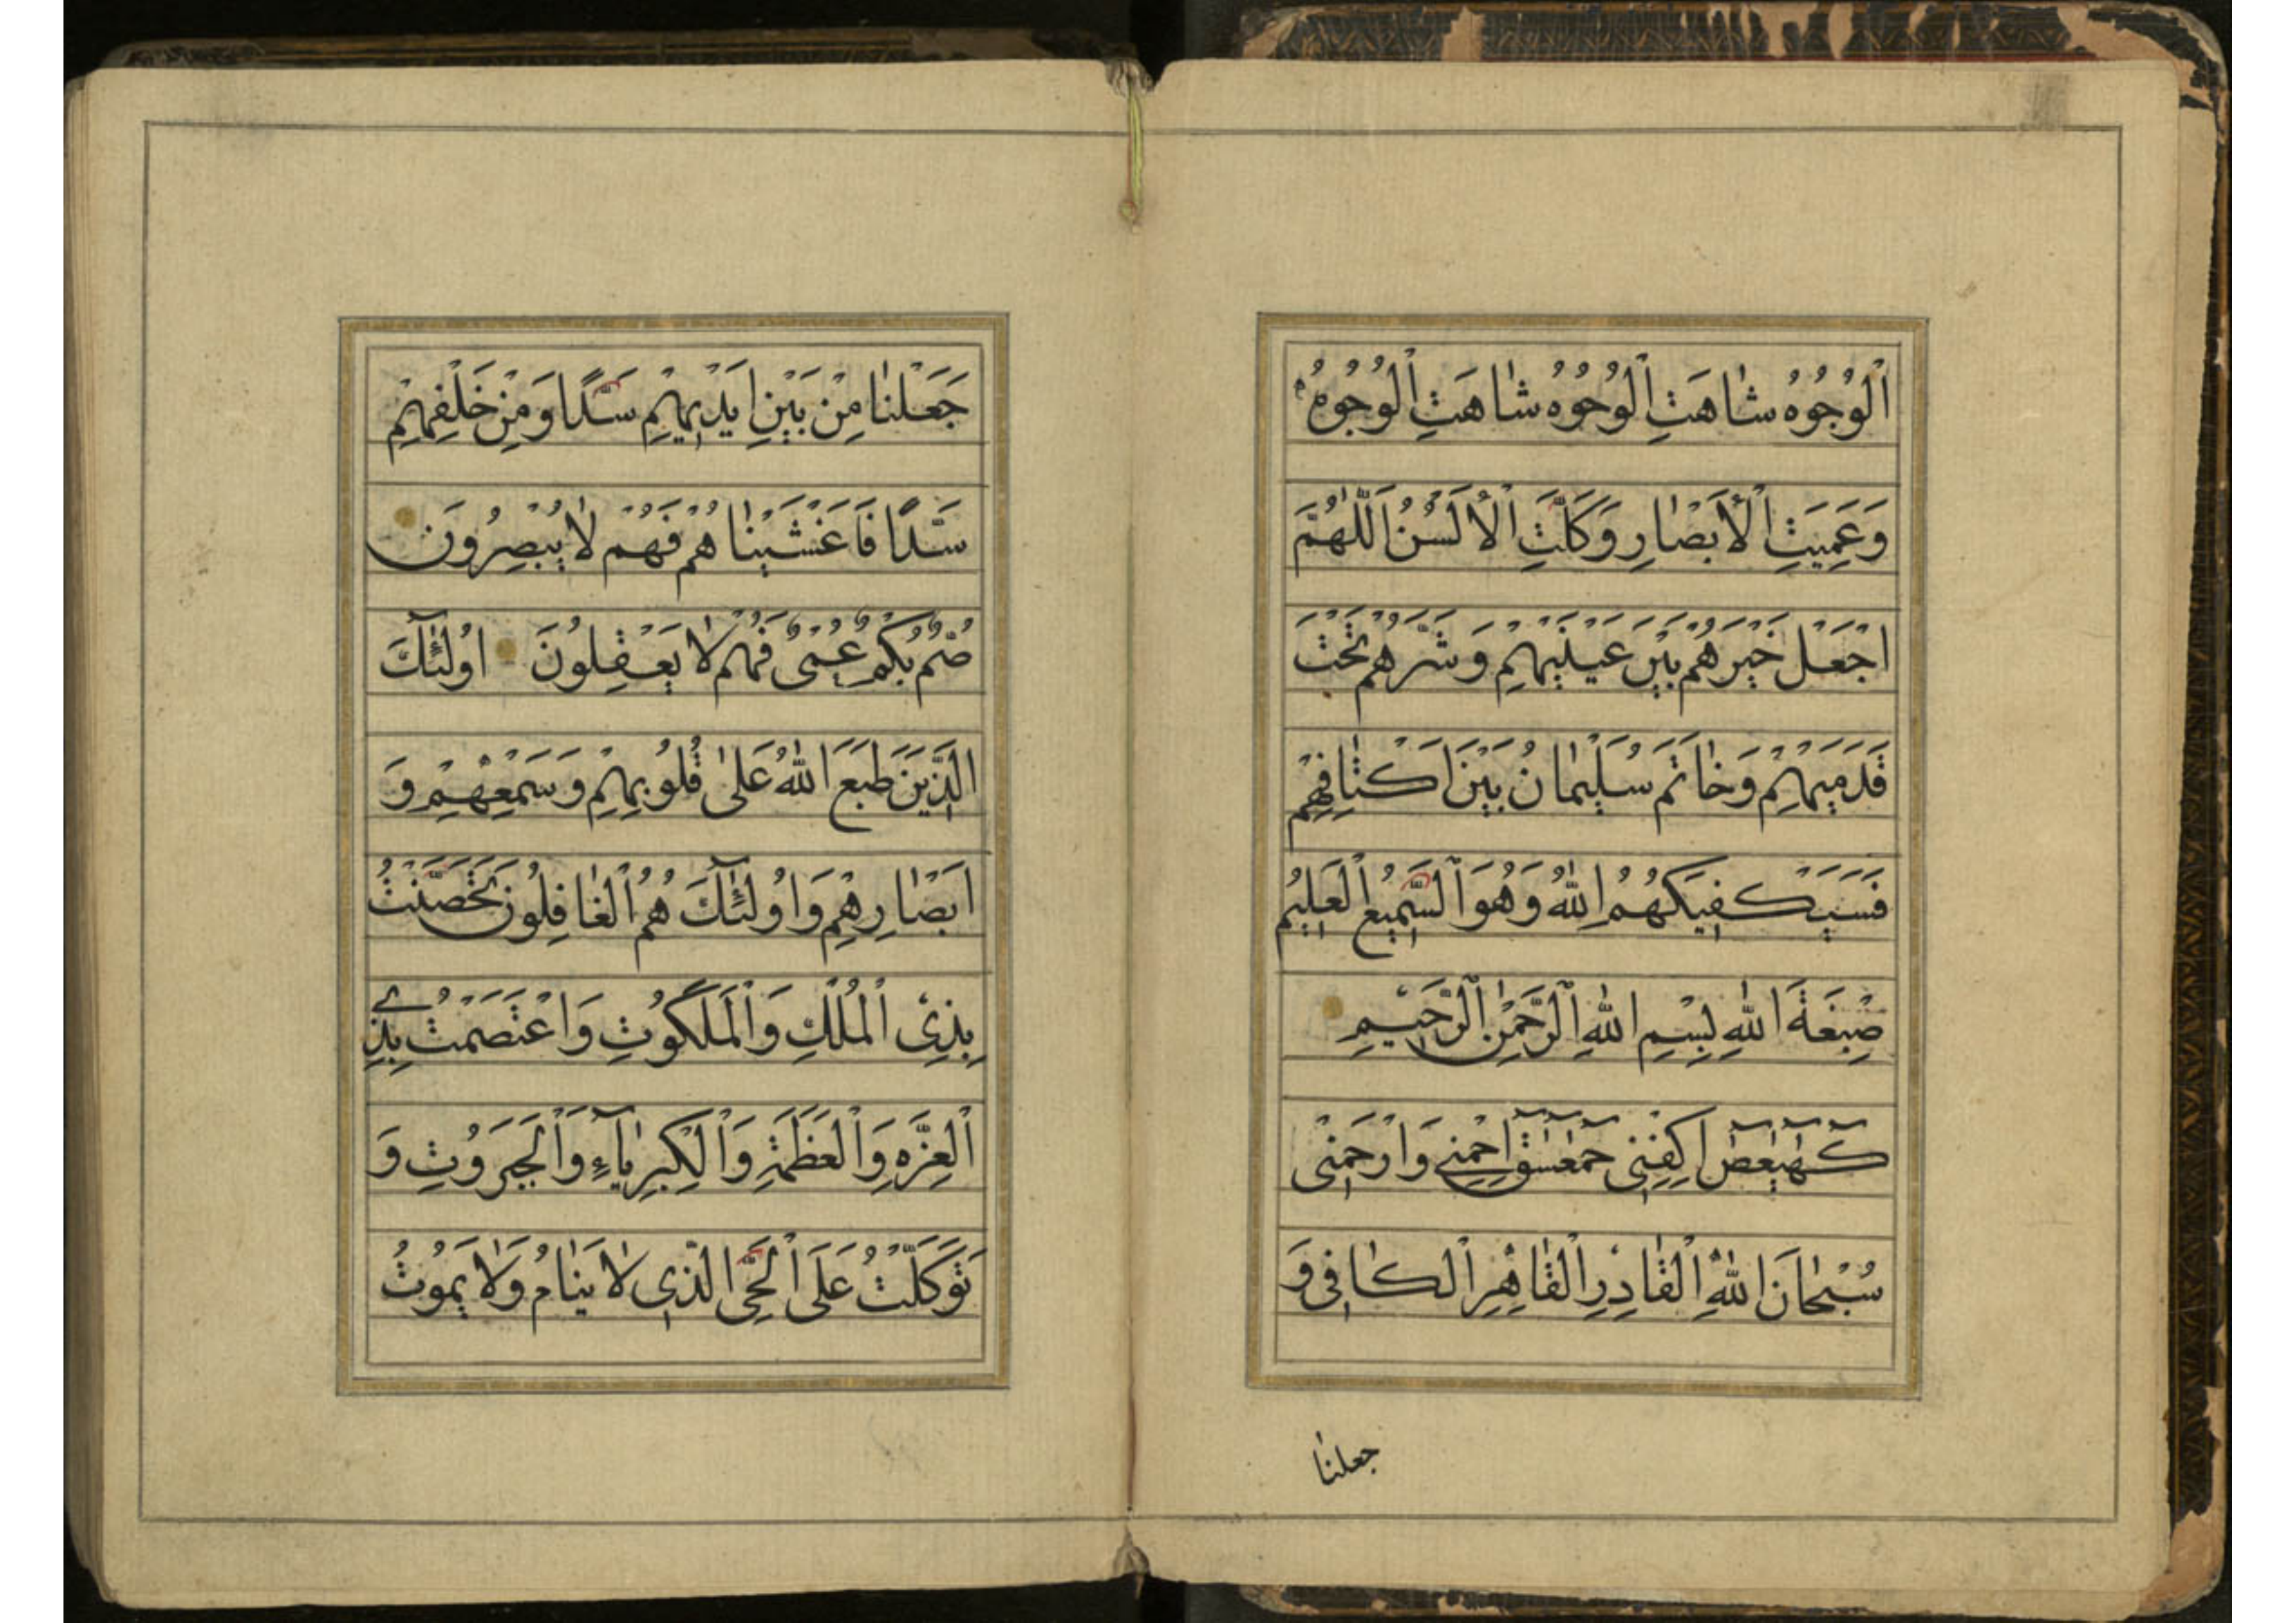 اَلْوُجُوهُ شٰاهَتِ الْوُجُوُهُ شٰاهَتِ الْوُجُوُهُ
وَعَمِيَتِ الْأَبْصٰارِ وَكَلَّتِ الْأَلْسُنُ اَللّٰهُمَّ
اجْعَلْ خَيْرَهُمْ بَيْنَ عَيْنَيْهِمْ وَشَرَّهُمْ تَحْتَ
قَدَمَيْهِمْ وَخٰاتَمَ سُلَيْمٰانُ بَيْنَ اَكْتٰافِهِمْ
فَسَيَكْفِيَكَهُمُ اللّٰهُ وَهُوَ السَّمِيعُ الْعَلِيمُ
صِبْغَةَ اللّٰهِ بِسْمِ اللّٰهِ الرَّحْمٰنِ الرَّحِيمِ
كٓهٰيٰعٓصٓ اِكْفِنِى حٰمٓعٓسٓقٓ اِحْمِنِى وَارْحَمْنِى
سُبْحٰانَ اللّٰهِ الْقٰادِرِ الْقٰاهِرِ الْكٰافِى وَ
جعلنٰا
جَعَلْنٰا مِنْ بَيْنِ اَيْدِيهِمْ سَدًّا وَمِنْ خَلْفِهِمْ
سَدًّا فَاَغْشَيْنٰاهُمْ فَهُمْ لٰا يُبْصِرُونَ
صُمٌّ بُكْمٌ عُمْىٌ فَهُمْ لٰا يَعْقِلُونَ اُولٰئِٓكَ
الَّذِينَ طَبَعَ اللّٰهُ عَلىٰ قُلُوبِهِمْ وَسَمْعِهِمْ وَ
اَبْصٰارِهِمْ وَاُولٰئِٓكَ هُمُ الْغٰافِلُونَ تَحَصَّنْتُ
بِذِى الْمُلْكِ وَالْمَلَكُوتِ وَاعْتَصَمْتُ بِذِى
الْعِزَّهِ وَالْعَظَمَةِ وَالْكِبْرِيٰآءِ وَالْجَبَرَوُتِ وَ
تَوَكَّلْتُ عَلَى الْحَىِّ الَّذِى لٰا يَنٰامُ وَلٰا يَمُوتُ